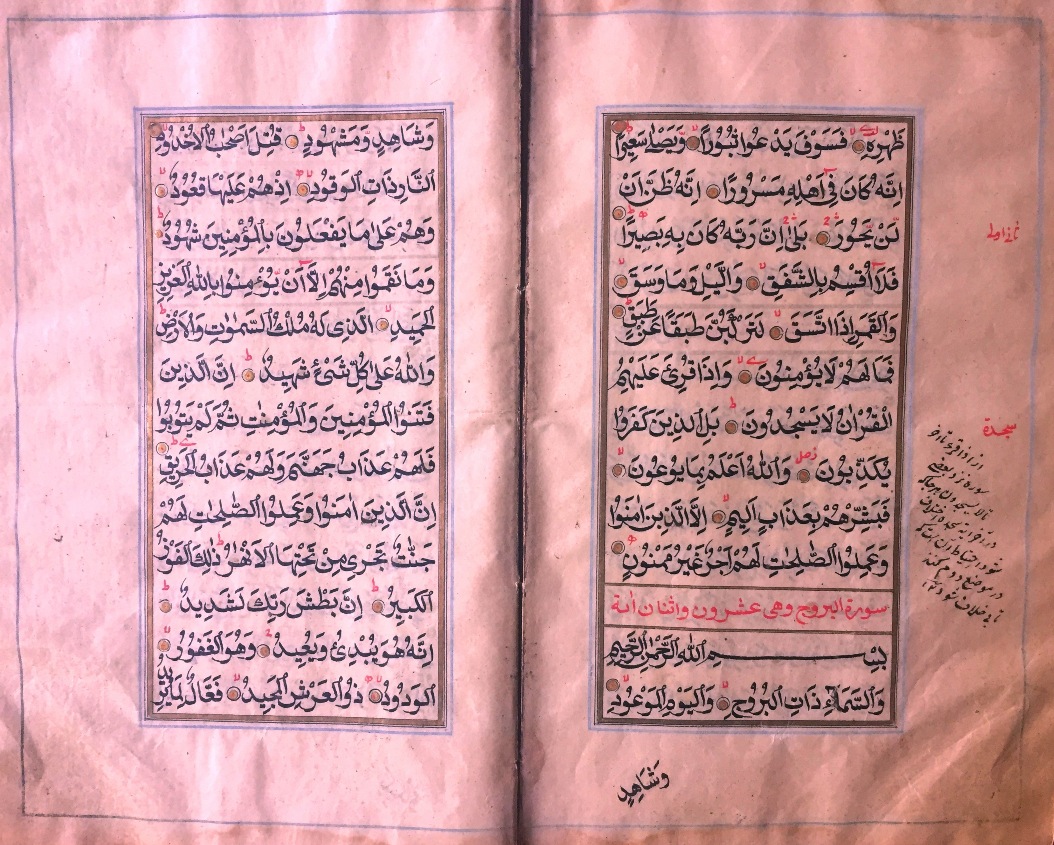 ظَهْرِهٖ فَسَوْفَ يَدْعُوا ثُبُوْرًا وَّيَصْلٰى سَعِيْرًا
اِنَّهٗ كَانَ فِيْ اَهْلِهٖ مَسْرُوْرًا اِنَّهٗ ظَنَّ اَنْ
لَّنْ يَّحُوْرَ بَلٰى اِنَّ رَبَّهٗ كَانَ بِهٖ بَصِيْرًا
فَلَا اُقْسِمُ بِالشَّفَقِ وَالَّيْلِ وَمَا وَسَقَ
وَالْقَمَرِ اِذَا اتَّسَقَ لَتَرْكَبُنَّ طَبَقًا عَنْ طَبَقٍ
فَمَا لَهُمْ لَا يُؤْمِنُوْنَ وَاِذَا قُرِئَ عَلَيْهِمُ
الْقُرْاٰنُ لَا يَسْجُدُوْنَ بَلِ الَّذِيْنَ كَفَرُوْا
يُكَذِّبُوْنَ وَاللّٰهُ اَعْلَمُ بِمَا يُوْعُوْنَ
فَبَشِّرْهُمْ بِعَذَابٍ اَلِيْمٍ اِلَّا الَّذِيْنَ اٰمَنُوْا
وَعَمِلُوا الصّٰلِحٰتِ لَهُمْ اَجْرٌ غَيْرُ مَمْنُوْنٍ
سورة البروج وهى عشرون واثنان اية
بِسْمِ اللّٰهِ الرَّحْمٰنِ الرَّحِيْمِ
وَالسَّمَاءِ ذَاتِ الْبُرُوْجِ وَالْيَوْمِ الْمَوْعُوْدِ
وَشَاهِدٍ
سجدة
وَشَاهِدٍ وَّمَشْهُوْدٍ قُتِلَ اَصْحٰبُ الْاُخْدُوْدِ
النَّارِ ذَاتِ الْوَقُوْدِ اِذْ هُمْ عَلَيْهَا قُعُوْدٌ
وَهُمْ عَلٰى مَا يَفْعَلُوْنَ بِالْمُؤْمِنِيْنَ شُهُوْدٌ
وَمَا نَقَمُوْا مِنْهُمْ اِلَّا اَنْ يُّؤْمِنُوْا بِاللّٰهِ الْعَزِيْزِ
الْحَمِيْدِ الَّذِيْ لَهٗ مُلْكُ السَّمٰوٰتِ وَالْاَرْضِ
وَاللّٰهُ عَلٰى كُلِّ شَيْءٍ شَهِيْدٌ اِنَّ الَّذِيْنَ
فَتَنُوا الْمُؤْمِنِيْنَ وَالْمُؤْمِنٰتِ ثُمَّ لَمْ يَتُوْبُوْا
فَلَهُمْ عَذَابُ جَهَنَّمَ وَلَهُمْ عَذَابُ الْحَرِيْقِ
اِنَّ الَّذِيْنَ اٰمَنُوْا وَعَمِلُوا الصّٰلِحٰتِ لَهُمْ
جَنّٰتٌ تَجْرِيْ مِنْ تَحْتِهَا الْاَنْهٰرُ ذٰلِكَ الْفَوْزُ
الْكَبِيْرُ اِنَّ بَطْشَ رَبِّكَ لَشَدِيْدٌ
اِنَّهٗ هُوَ يُبْدِئُ وَيُعِيْدُ وَهُوَ الْغَفُوْرُ
الْوَدُوْدُ ذُو الْعَرْشِ الْمَجِيْدُ فَعَّالٌ لِّمَا يُرِيْدُ